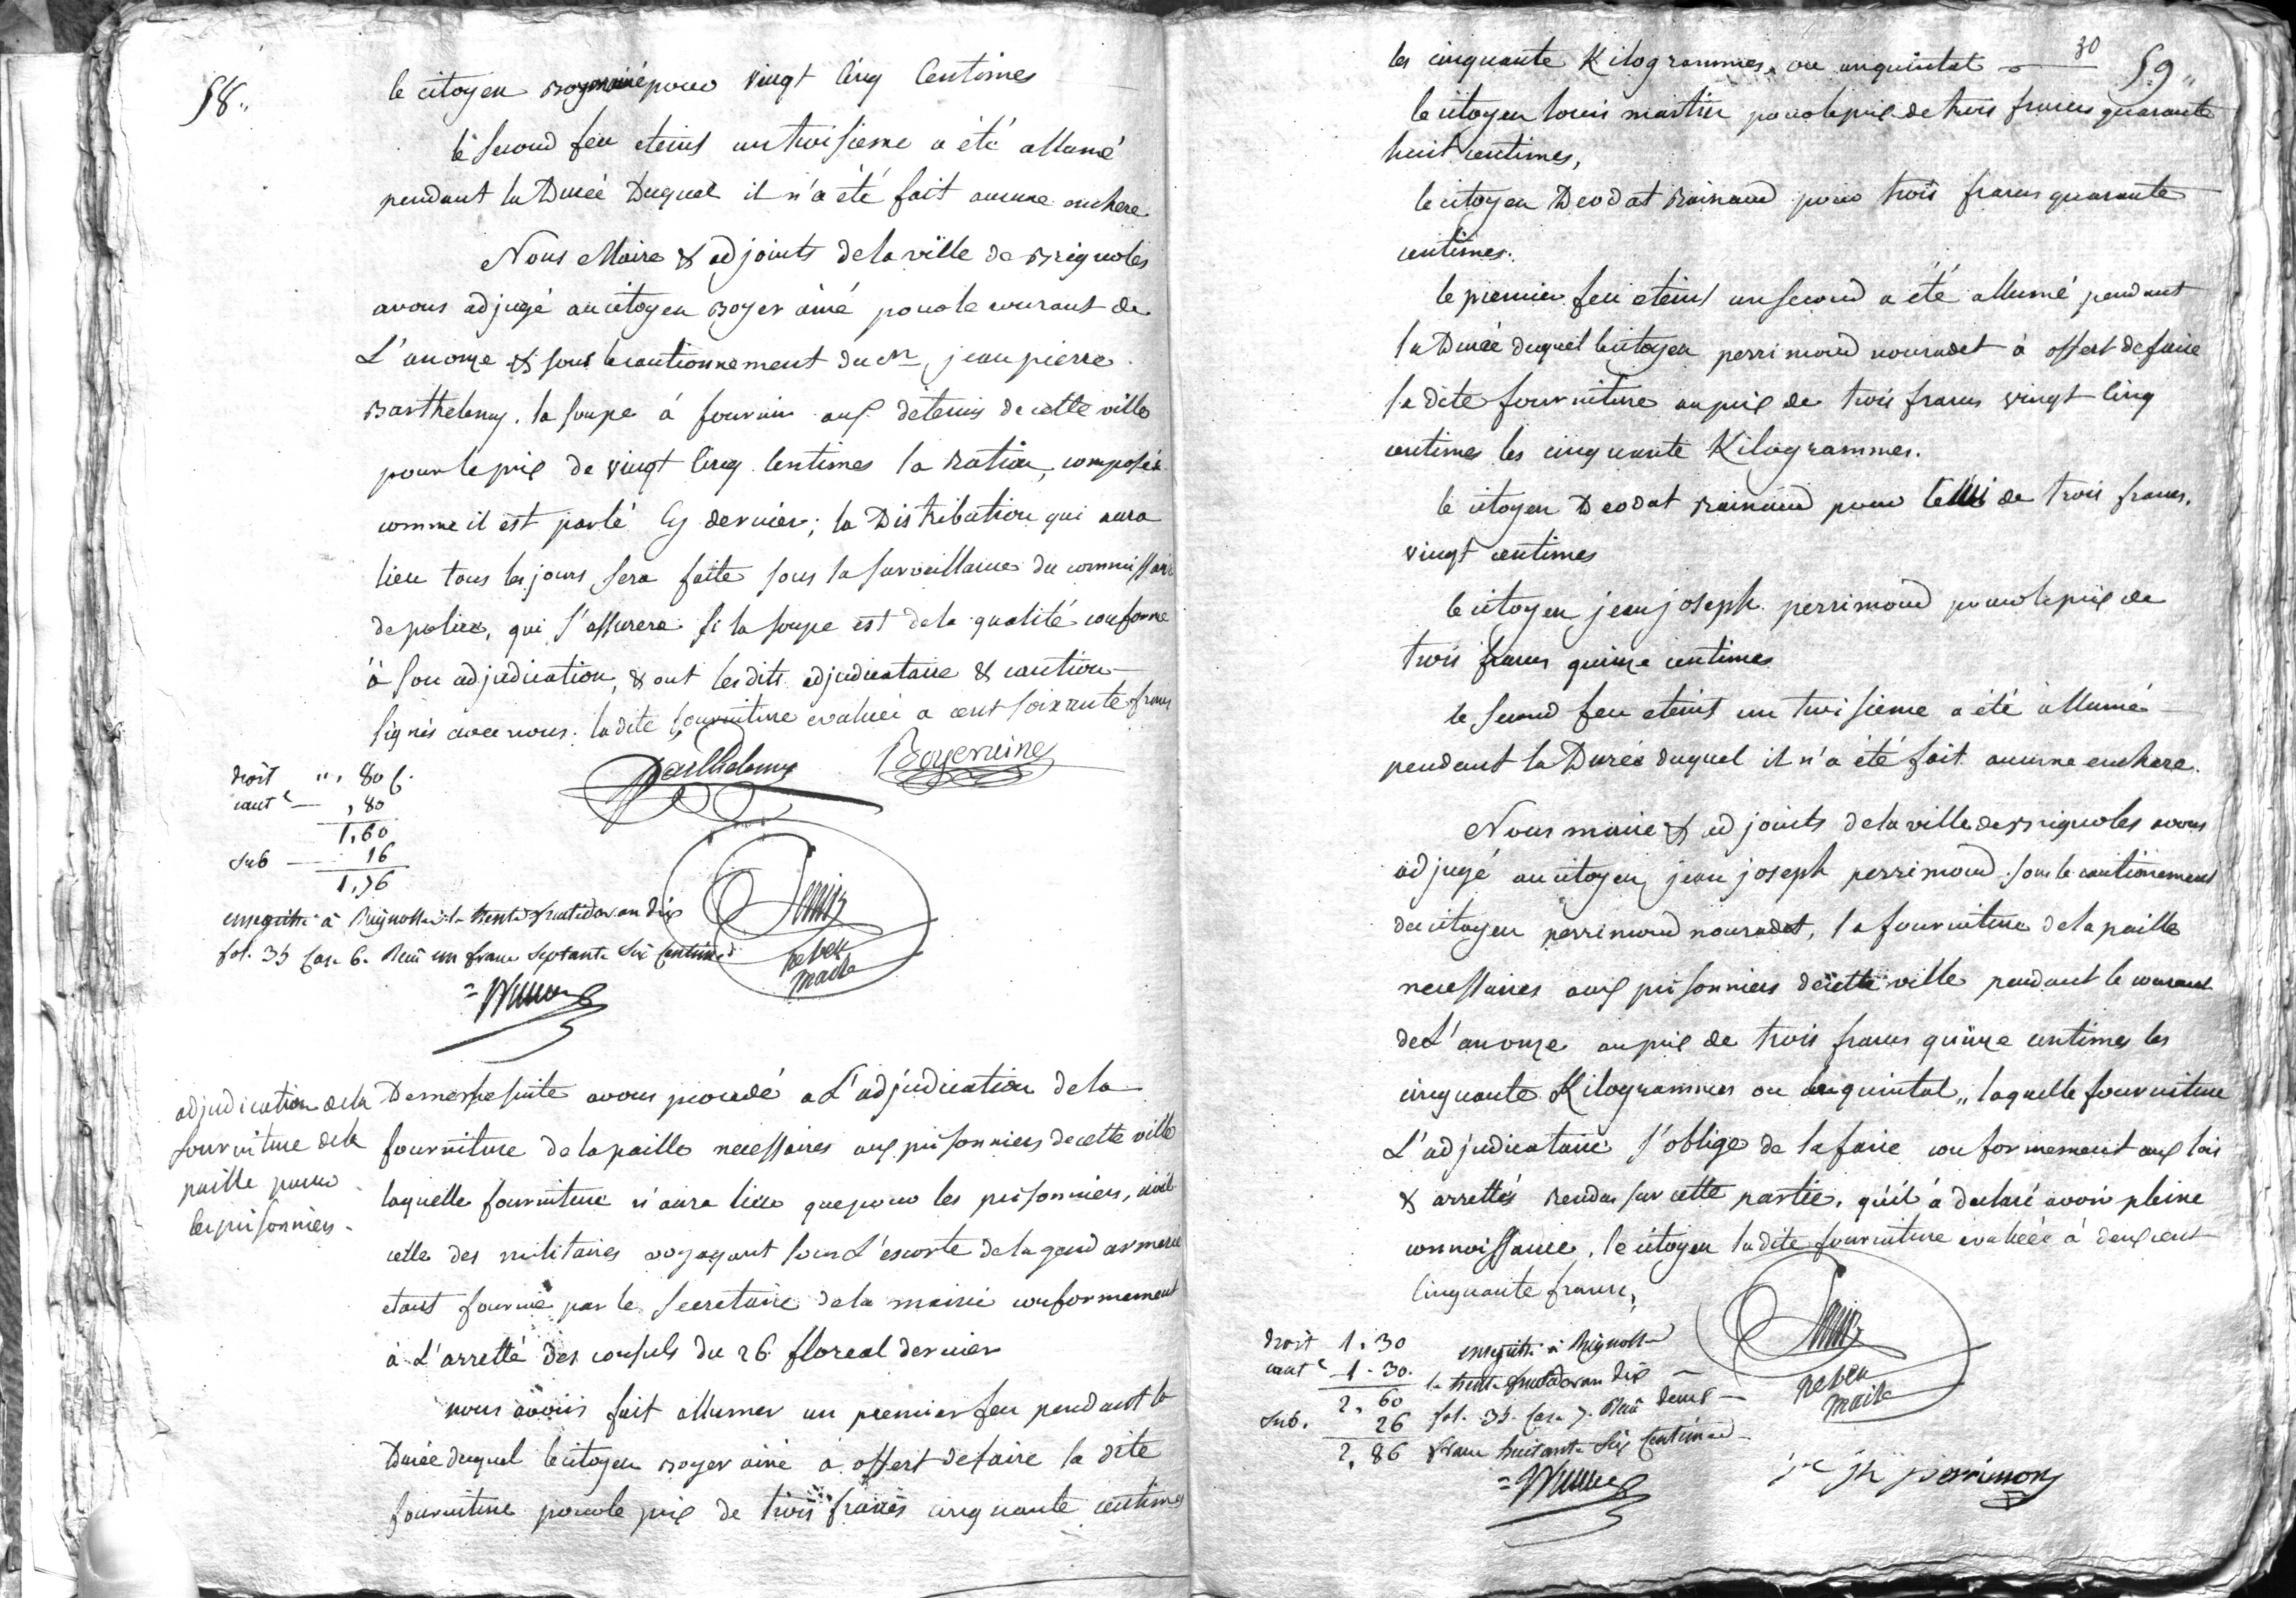 58"
le citoyen Boyer ainé pour vingt cinq centimes
le second feu eteint un troisieme a été allumé
pendant la Durée Duquel il n'a été fait aucune enchere
Nous Maire & adjoints de la ville de Brignoles
avons adjugé au citoyen Boyer ainé pour le courant de
L'an onze & sous le cautionnement du cen jean pierre
Barthelemy, la soupe à fournir aux detenus de cette ville
pour le prix de vingt cinq centimes la Ration, composée
comme il est parlé cy dernier; la Distribution qui aura
lieu tous les jours sera faite sous la surveillance du commissaire
de police, qui s'assurera si la soupe est de la qualité conforme
à son adjudication, & ont lesdits adjudicataire & caution
signés avec nous. la dite fourniture evaluée a cent soixante francs
Barthelemy Boyer aine
droit ", 80 c.
caut t , 80
1,60
sub 16
1,76
enregistré à Brignolles le trente fructidor an dix
fol. 35 case 6. Reçu un franc septante six centimes
rebec
maire
adjudication de la
fourniture de la
paille pour
les prisonniers
De meme suite avons procedé a L'adjudication de la
fourniture de la paille necessaires aux prisonniers de cette ville
laquelle fourniture n'aura lieu que pour les prisonniers, civils
celle des militaires voyageant sous L'escorte de la gendarmerie
etant fournie par le secretaire de la mairie conformement
à L'arretté des consuls du 26 floreal dernier
nous avons fait allumer un premier feu pendant la
Durée duquel le citoyen Boyer ainé a offert de faire la dite
fourniture pour le prix de trois francs cinquante centimes
30
59"
les cinquante Kilogrammes, ou un quintal
le citoyen Louis martin pour le prix de trois francs quarante
huit centimes,
le citoyen Deodat Rainaud pour trois francs quarante
centimes.
le premier feu eteint un second a été allumé pendant
la Durée duquel le citoyen perrimond nouradet à offert de faire
la dite fourniture au prix de trois francs vingt cinq
centimes les cinquante Kilogrammes.
le citoyen Deodat Rainaud pour celui de trois francs
vingt centimes
le citoyen jean joseph perrimond pour le prix de
trois francs quinze centimes
le second feu eteint un troisieme a été allumé
pendant la Durée duquel il n'a été fait aucune enchere.
Nous maire & adjoints de la ville de Brignoles avons
adjugé au citoyen jean joseph perrimond sous le cautionnement
du citoyen perrimond nouradet, la fourniture de la paille
necessaires aux prisonniers de cette ville pendant le courant
de L'an onze au prix de trois francs quinze centimes les
cinquante Kilogrammes ou un quintal, laquelle fourniture
L'adjudicataire s'oblige de la faire conformement aux lois
& arrettés rendus sur cette partie, qu'il a declaré avoir pleine
connoissance, le citoyen la dite fourniture evaluée à deux cent
cinquante francs,
droit 1.30
caut t 1.30.
2,60
sub. 26
2,86
enregistré à Brignolles
le trente fructidor an dix
fol. 35. case 7. Reçu deux
franc huitante six centimes
rebec
maire
jn jh perrimond